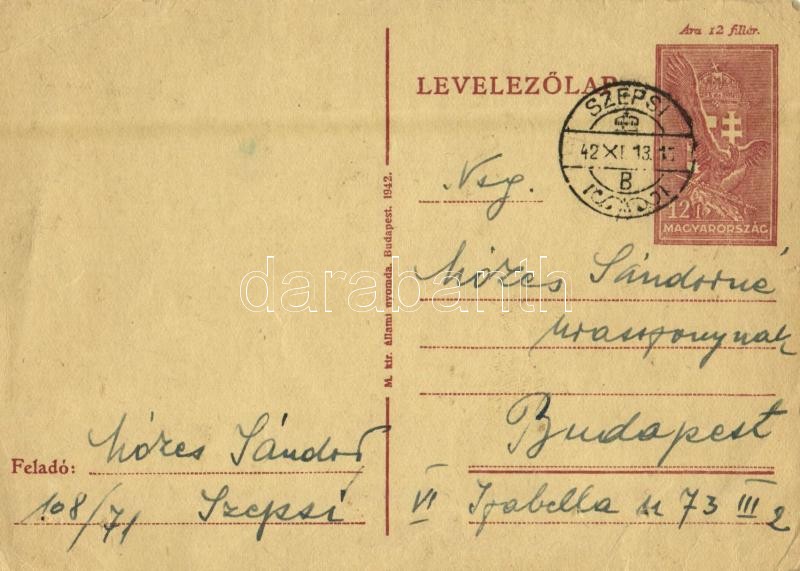 Ára 12 fillér.
LEVELEZŐLAP
SZEPSI
42 XI 13. 1
B
12 f
MAGYARORSZÁG
Nsg.
Mózes Sándorné
úrasszonynak
Budapest
VI Izabella u 73 III 2
M. kir. állami nyomda. Budapest. 1942.
Feladó: Mózes Sándor
108/71 Szepsi
darabanth